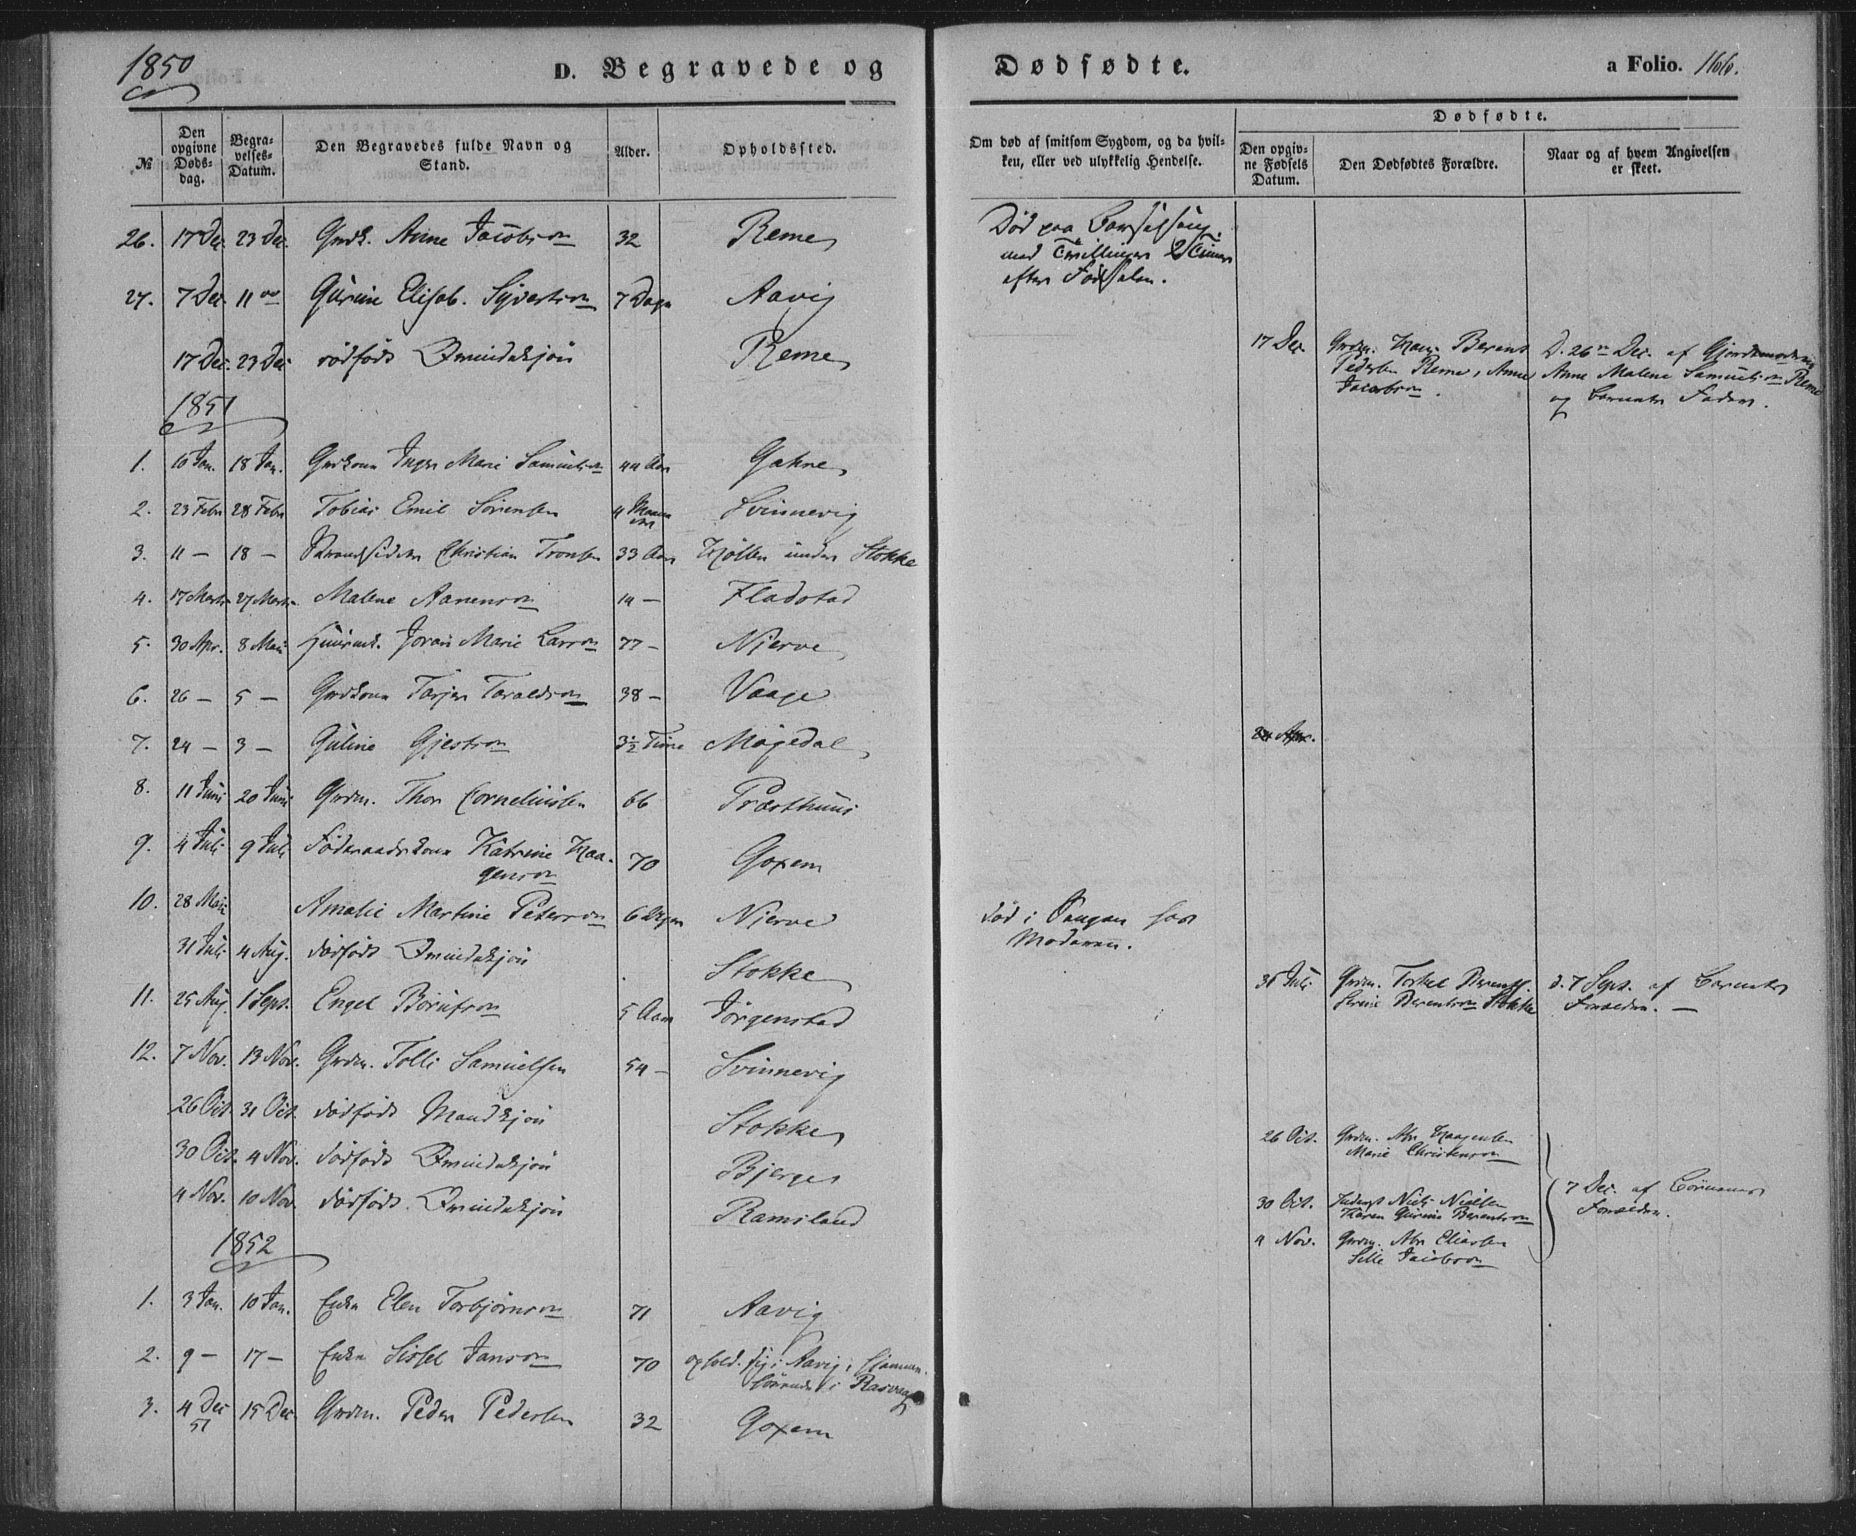 1850
D. Begravede og Dødfødte.
a Folio. 166.
№
Den opgivne Døds-dag.
Begra-velses-Datum.
Den Begravedes fulde Navn og Stand.
Alder.
Opholdssted.
Om død af smitsom Sygdom, og da hvil-ken, eller ved ulykkelig Hendelse.
Dødfødte.
Den opgiv-ne Fødsels Datum.
Den Dødfødtes Forældre.
Naar og af hvem Angivelsen er skeet.
26. 17 Dec. 23 Dec. Gmdk. Anne Jacobsen 32 Reme Død paa Barselseng
med Trillinger 2 Timer
efter Fødselen.
27. 7 Dec. 11 Gurine Elisab. Syvertsen 7 Dage Aavig
17 Dec. 23 Dec dødfødt Qvindekjøn Reme 17 Dec. Grdm. Berent
Pedersen Reme, Anne
Jacobsen.
D. 26 Dec. af Gjordemoderen
Anne Malene Samuelsen Reme
og Barnets Fader.
1851
1. 10 Jan. 18 Jan. Grdkone Inger Marie Samuelsen 44 Aar Gahre
2. 23 Febr 28 Febr Tobias Emil Sørensen 4 Maaneder Svinnevig
3. 11 — 18 — Strandsidder Christian Tronsen 33 Aar under Stokke
4. 17 Marts 27 Marts Malene Aanensen 14 — Fladstad
5. 30 Apr. 8 Mai Joran Marie Larsen 77 — Njerve
6. 26 — 5 — Grdkone Tarjer Taraldsen 38 — Vaage
7. 24 — 3 — Guline Gjestsen 3½ Time Møgedal 24 Apr.
8. 11 Juni 20 Juni Grdm. Thor Corneliusen 66 Præsthuus
9. 4 Juli 9 Juli Føderaadskone Katrine Haa-
gensen 70 Goxem
10. 28 Mai Amalie Martine Petersen 6 Uger Njerve død i Sengen hos
Moderen.
31 Juli 4 Aug. dødfødt Qvindekjøn Stokke 31 Juli Grdm. Torkel Berents.
Serine Berentsen Stokke
d. 7 Sept. af Barnets
Forældre. —
11. 25 Aug. 1 Sept. Engel Børufsen 5 Aar Jørgenstad
12. 7 Nov. 13 Nov. Grdm. Tolli Samuelsen 54 — Svinnevig
26 Oct. 31 Oct. dødfødt Mandkjøn Stokke 26 Oct. Grdm. Abr Haagensen
Marie Christensen
30 Oct. 4 Nov. dødfødt Qvindekjøn Bjerges 30 Oct. Inderst Niels Nielsen
Karen Gurine Berentsen
7 Dec. af Børnenes
Forældre.
4 Nov. 10 Nov. dødfødt. Qvindekjøn Ramsland 4 Nov. Grdm. Abr Eliassen
Sille Jacobsen
1852
1. 3 Jan. 10 Jan. Enke Elen Torbjørnsen 71 Aavig
2. 9 — 17 — Enke Sissel Jansen 70 ophold. sig i Aavig, hjemme-
hørende i Rasvaag
3. 4 Dec 51 15 Dec Grdm. Peder Pedersen 32 Goxem